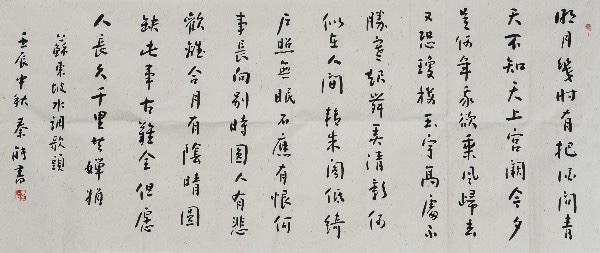 明月幾時有把酒問青
天不知天上宮闕今夕
是何年我欲乘風歸去
又恐瓊樓玉宇高處不
勝寒起舞弄清影何
似在人間轉朱閣低綺
戶照無眠不應有恨何
事長向別時圓人有悲
歡離合月有陰晴圓
缺此事古難全但愿
人長久千里共嬋娟
蘇東坡水調歌頭
壬辰中秋秦書